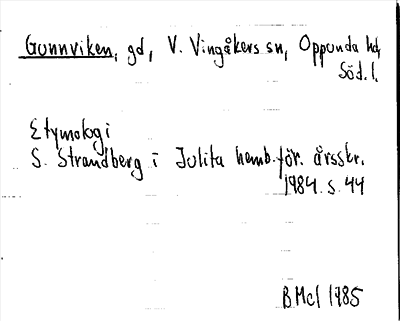 Gunnviken, gd, V. Vingåkers sn, Oppunda hd,
Söd. l.
Etymologi
S. Strandberg i Julita hemb.för. årsskr.
1984. s. 44
BMcl 1985